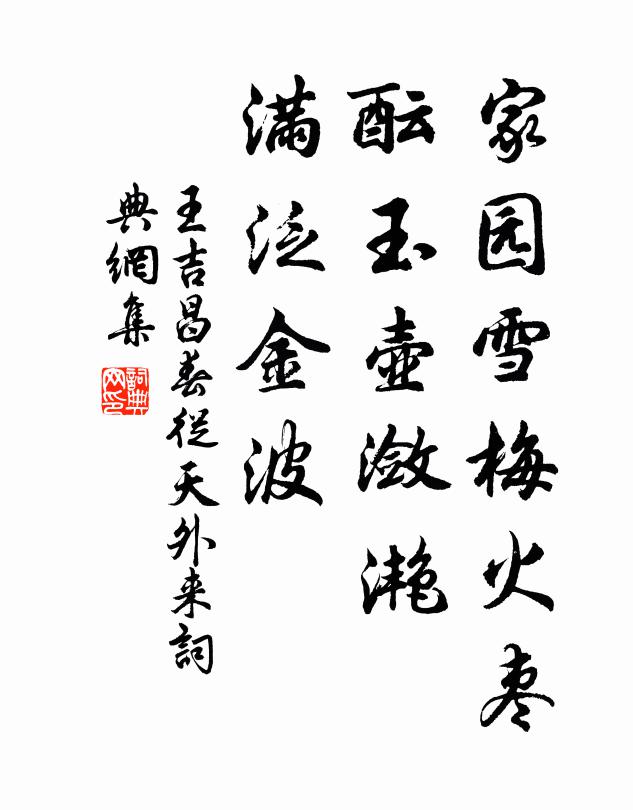 家园雪梅火枣
酝玉壶潋滟
满泛金波
王吉昌春從天外来詞
典網集
詞典
网印